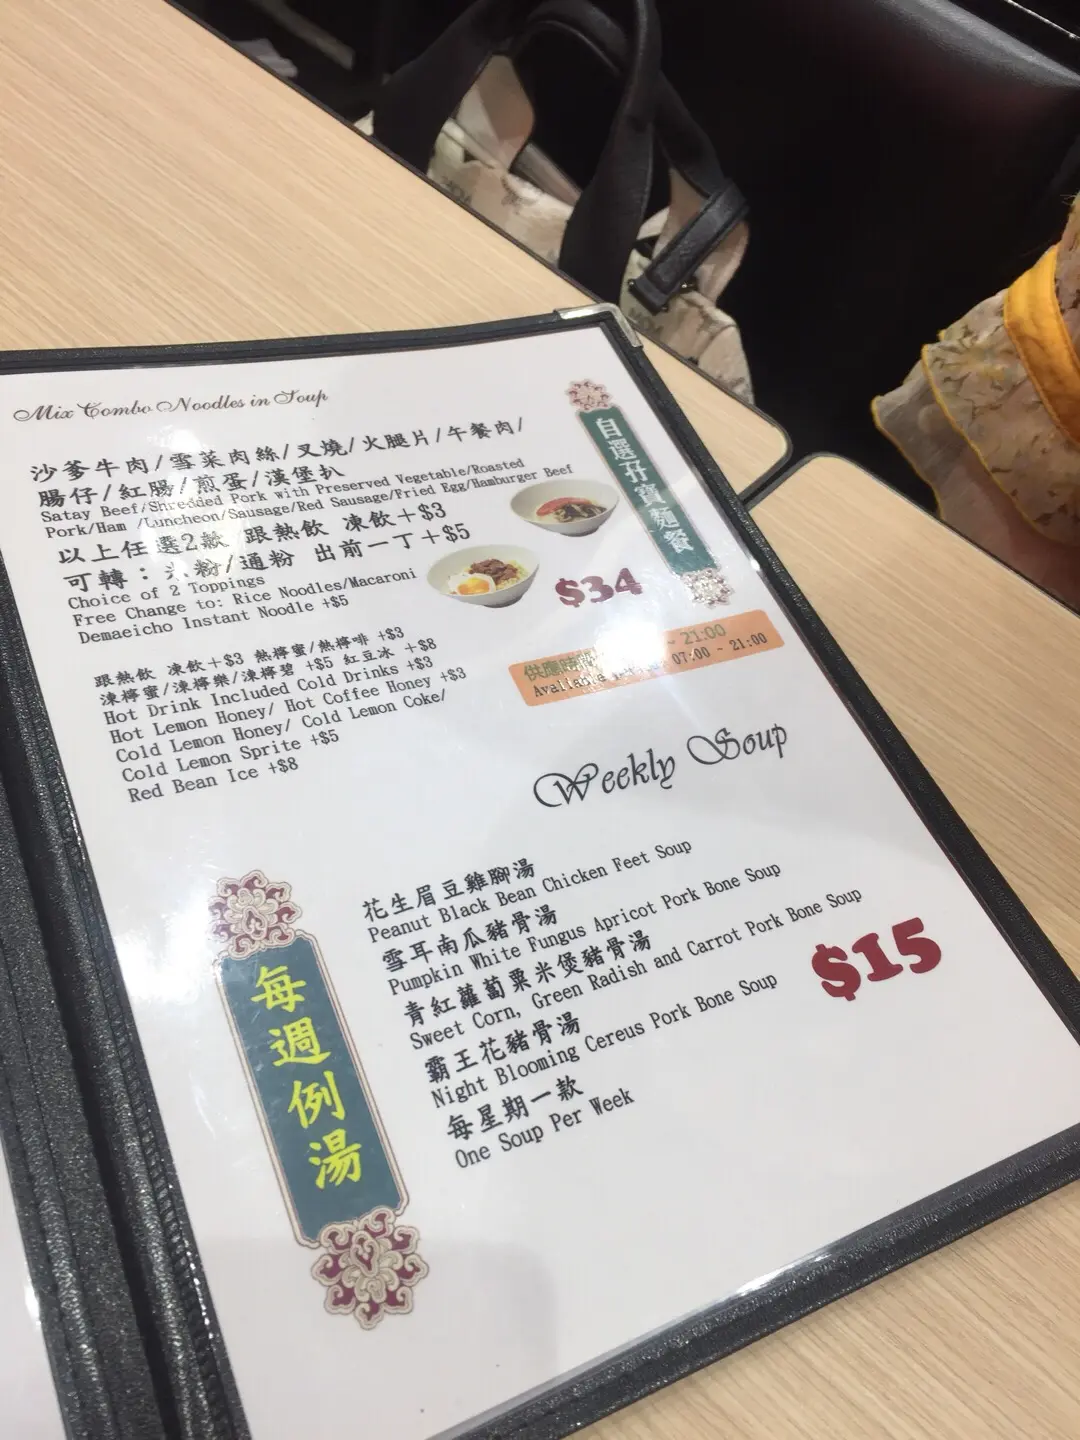 Mix Combo Noodles in Soup
自選孖寶麵餐
沙爹牛肉/雪菜肉絲/叉燒/火腿片/午餐肉/
腸仔/紅腸/煎蛋/漢堡扒
Satay Beef/Shredded Pork with Preserved Vegetable/Roasted
Pork/Ham /Luncheon/Sausage/Red Sausage/Fried Egg/Hamburger Beef
以上任選2款 跟熱飲 凍飲+$3
可轉：米粉/通粉 出前一丁+$5
Choice of 2 Toppings
Free Change to: Rice Noodles/Macaroni
Demaeicho Instant Noodle +$5
$34
跟熱飲 凍飲+$3 熱檸蜜/熱檸啡 +$3
凍檸蜜/凍檸樂/凍檸碧 +$5 紅豆冰 +$8
Hot Drink Included Cold Drinks +$3
Hot Lemon Honey/ Hot Coffee Honey +$3
Cold Lemon Honey/ Cold Lemon Coke/
Cold Lemon Sprite +$5
Red Bean Ice +$8
供應時間 ~ 21:00
Available 07:00 ~ 21:00
Weekly Soup
每週例湯
花生眉豆雞腳湯
Peanut Black Bean Chicken Feet Soup
雪耳南瓜豬骨湯
Pumpkin White Fungus Apricot Pork Bone Soup
青紅蘿蔔粟米煲豬骨湯
Sweet Corn, Green Radish and Carrot Pork Bone Soup
霸王花豬骨湯
Night Blooming Cereus Pork Bone Soup
每星期一款
One Soup Per Week
$15